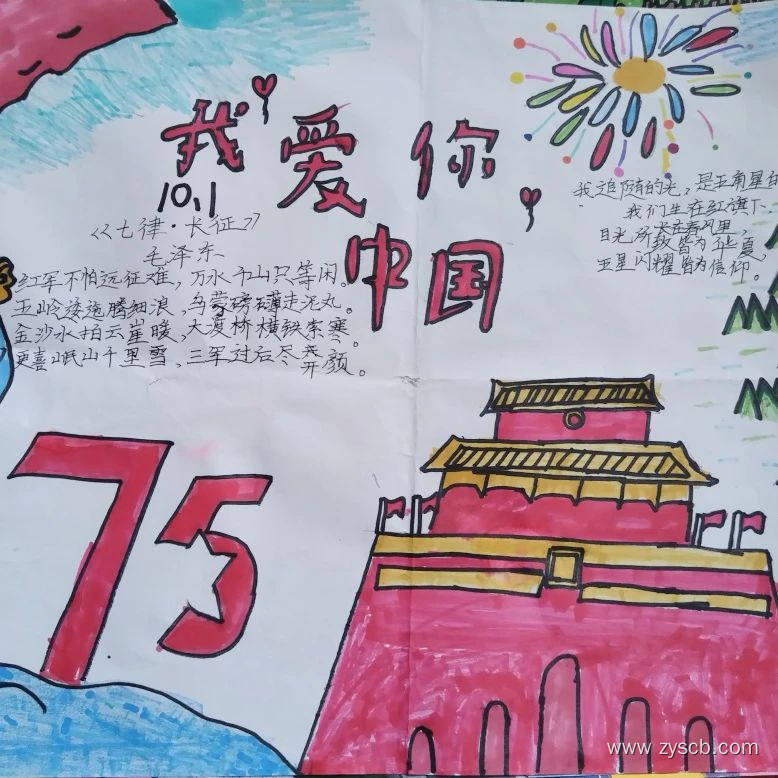 我爱你
中国
10.1
《七律·长征》
毛泽东
红军不怕远征难,万水千山只等闲。
五岭逶迤腾细浪,乌蒙磅礴走泥丸。
金沙水拍云崖暖,大渡桥横铁索寒。
更喜岷山千里雪,三军过后尽开颜。
我追随的光,是五角星的
我们生在红旗下、
长在春风里,
目光所致皆为华夏,
五星闪耀皆为信仰。
75
www.zyscb.com